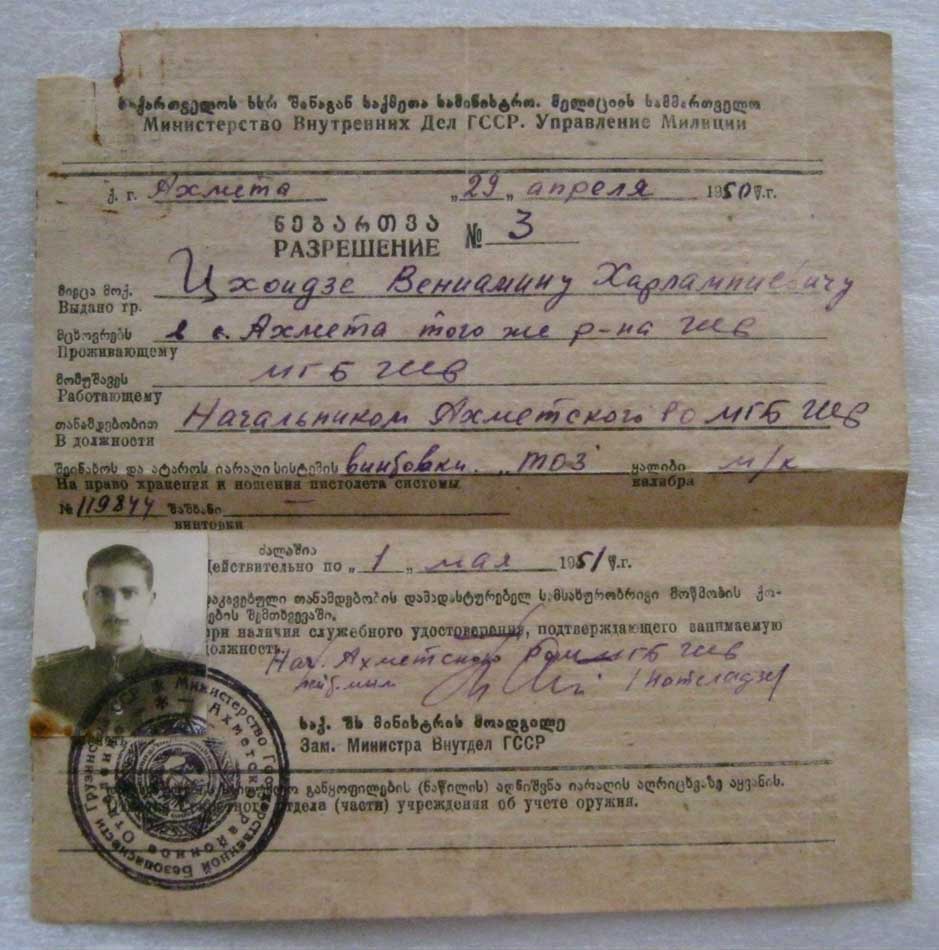 საქართველოს სსრ შინაგან საქმეთა სამინისტრო. მილიციის სამმართველო
Министерство Внутренних Дел ГССР. Управление Милиции
ქ. г. Ахмета „29„ апреля 1950 წ.г.
ნებართვა
РАЗРЕШЕНИЕ № 3
მიეცა მოქ.
Выдано гр. Цхоидзе Вениамину Харлампиевичу
მცხოვრებს
Проживающему в с. Ахмета того же р-на
მომუშავეს
Работающему МГБ
თანამდებობით
В должности Начальником Ахметского РО МГБ
შეინახოს და ატაროს იარაღი სისტემის винтовки „ТОЗ ყალიბი м/к
На право хранения и ношения пистолета системы калибра
№ 119844 შაშხანი —
винтовки
ძალაშია
Действительно по „1„ мая 1951 წ.г.
დაკავებული თანამდებობის დამადასტურებელ სამსახურობრივი მოწმობის ქო-
ნების შემთხვევაში.
при наличия служебного удостоверения, подтверждающего занимаемую
должность.
Нач. Ахметского МГБ
საქ. სს მინისტრის მოადგილე
Зам. Министра Внутдел ГССР
განყოფილების (ნაწილის) აღნიშვნა იარაღის აღრიცხვაზე აყვანის.
отдела (части) учреждения об учете оружия.
Министерство Государственной Безопасности Грузинской ССР
Ахметское Районное Отделение